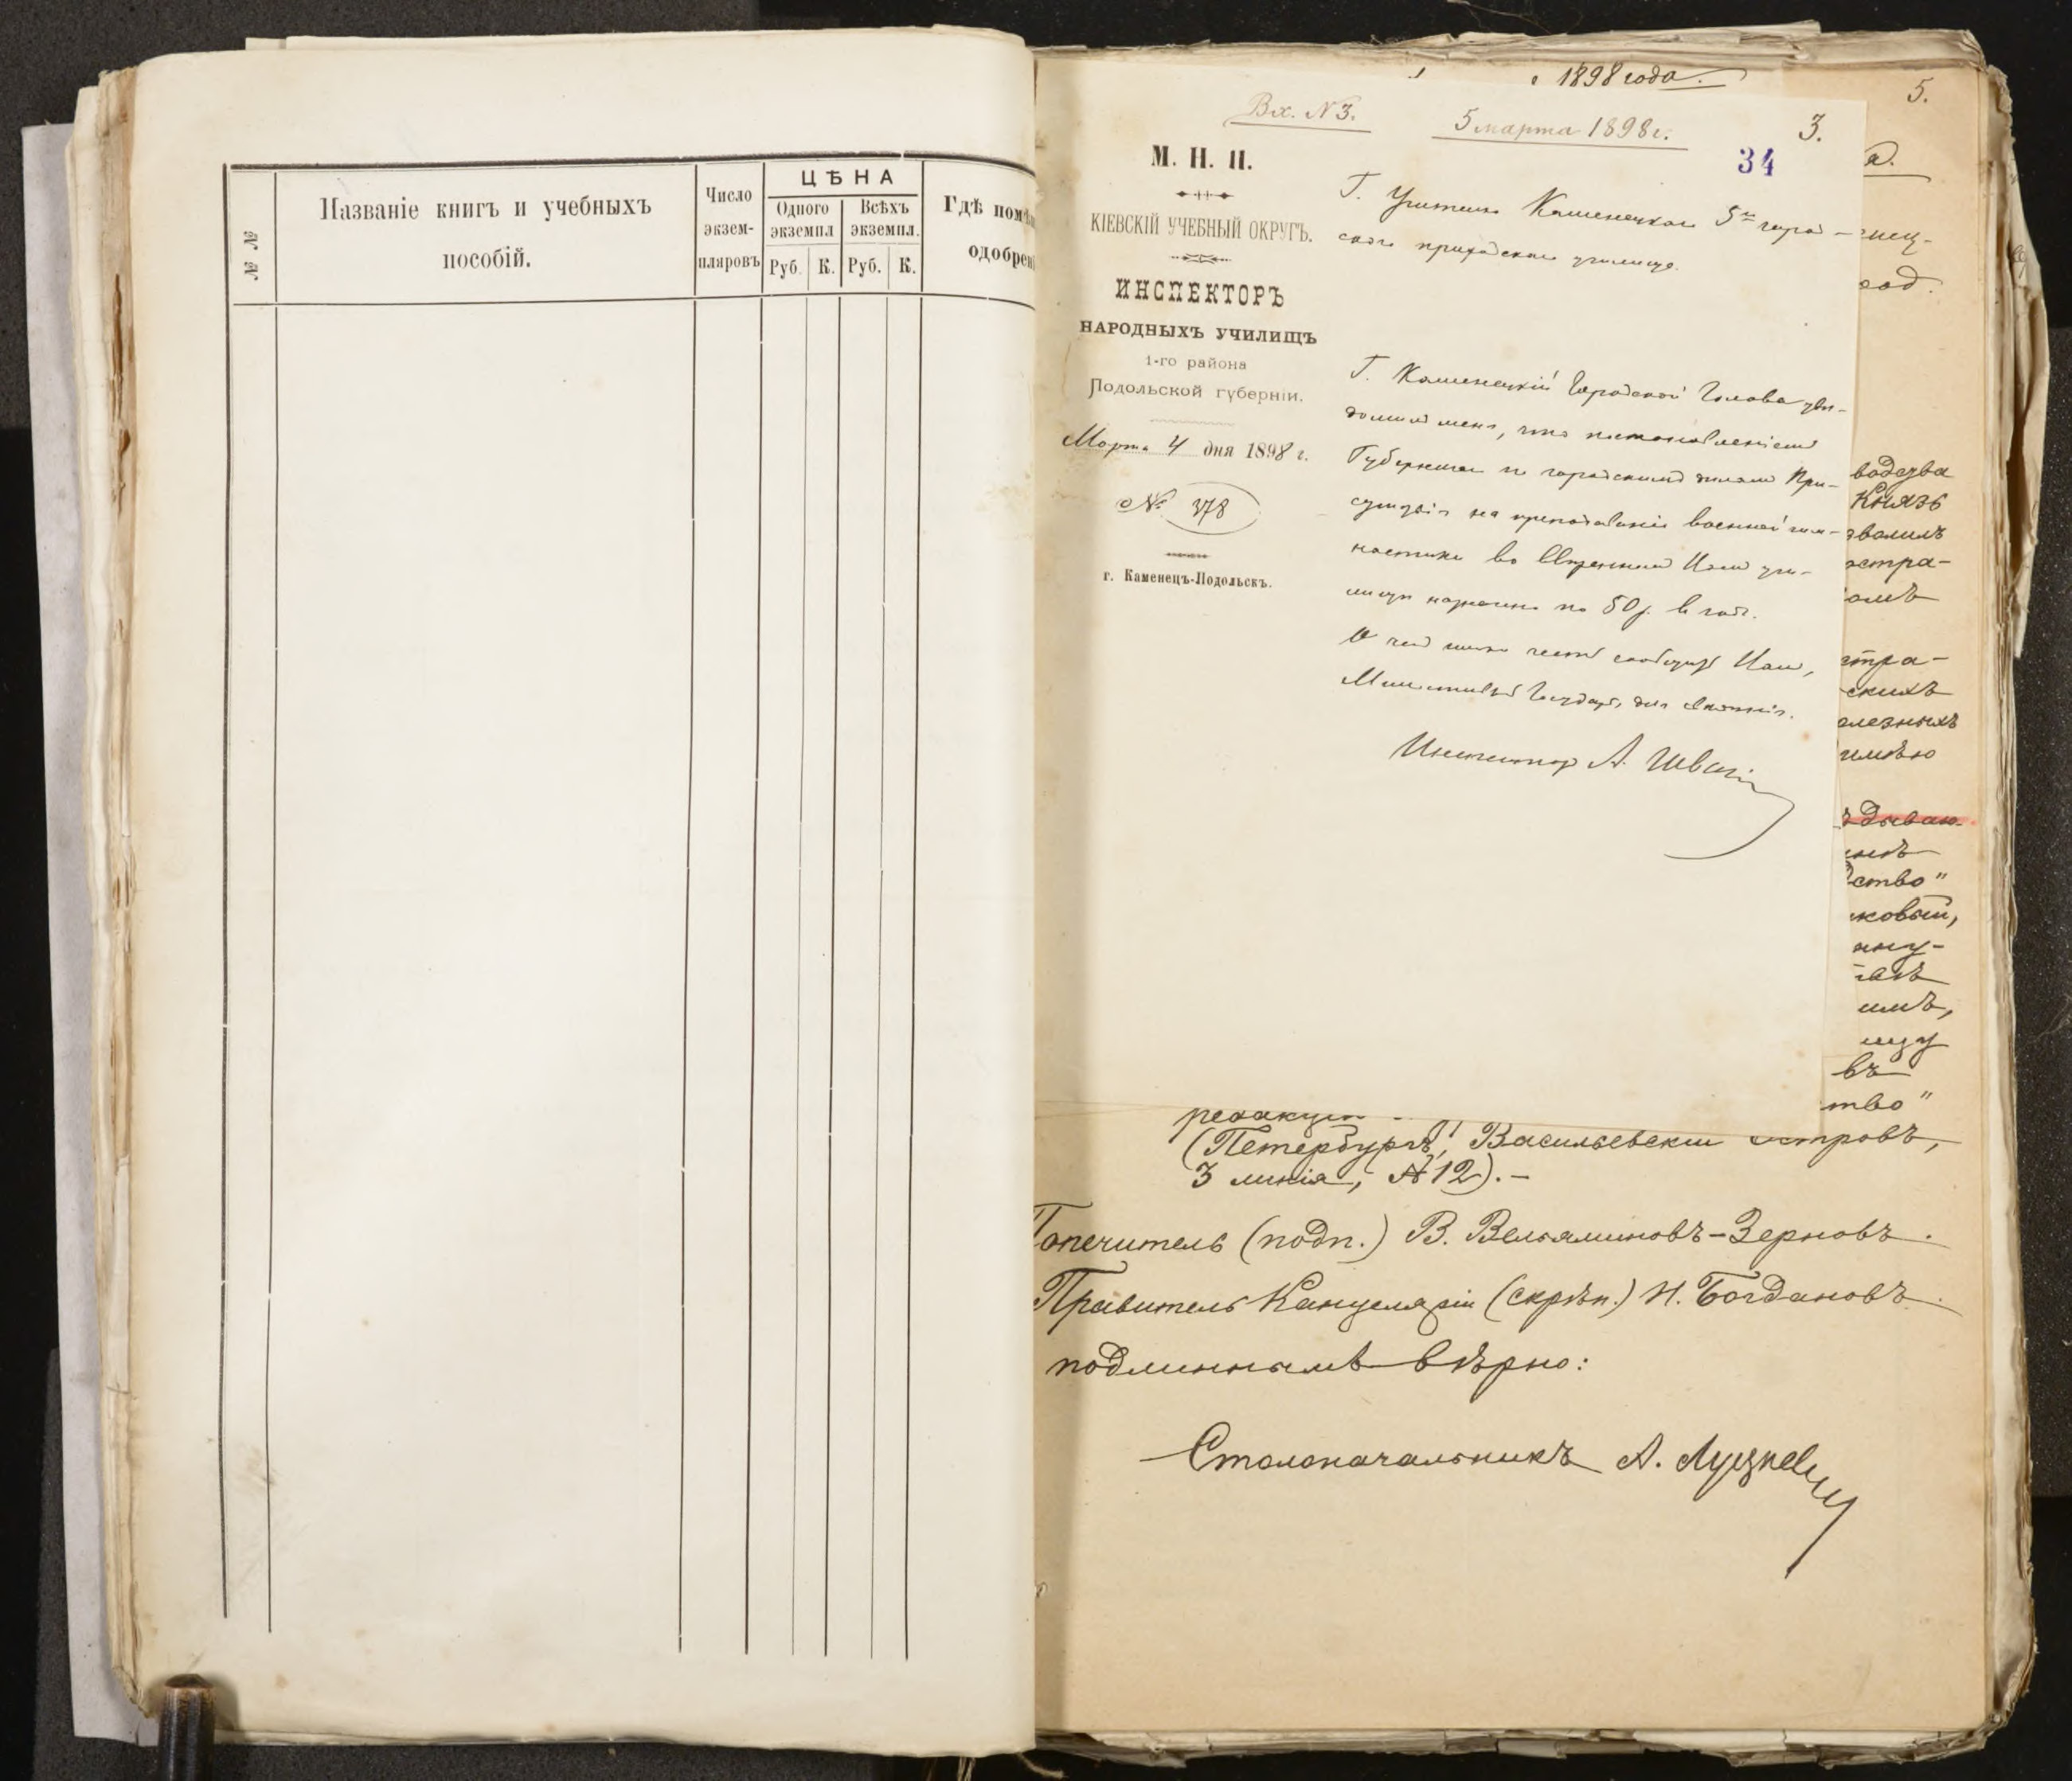 № №
Названіе книгъ и учебныхъ
пособій.
Число
экзем-
пляровъ
ЦѢНА
Одного
экземпл
Всѣхъ
экземпл.
Руб. К. Руб. К.
Гдѣ
одобрен
1898 года.
5.
Вх. № 3.
5 марта 1898 г.
3.
34
М. Н. П.
КІЕВСКІЙ УЧЕБНЫЙ ОКРУГЪ.
ИНСПЕКТОРЪ
НАРОДНЫХЪ УЧИЛИЩЪ
1-го района
Подольской губерніи.
Марта 4 дня 1898 г.
№ 378
г. Каменецъ-Подольскъ.
Г. Учителю Каменецкаго 5го город-
скаго приходскаго училища.
Г. Каменецкій Городской Голова уве-
домилъ меня, что постановленіемъ
Губернскаго по городскимъ дѣламъ При-
сутствія на преподаваніе военной гим-
настики во ввѣренномъ Вамъ учи-
лищѣ назначено по 50 р. въ годъ.
О чемъ имѣю честь сообщить Вамъ,
Милостивый Государь, для свѣдѣнія.
Инспекторъ А.
а.
нец-
род.
Князь
зволилъ
стра-
омъ
стра-
скихъ
олезныхъ
имѣю
дываю-
ство"
ковый,
имъ,
въ
тво"
(Петербургъ, Васильевскій Островъ,
3 линія, № 12).-
Попечитель (подп.) В. Вельяминовъ-Зерновъ.
Правитель Канцеляріи (скрѣп.) Н. Богдановъ.
подлиннымъ вѣрно:
Столоначальникъ А.